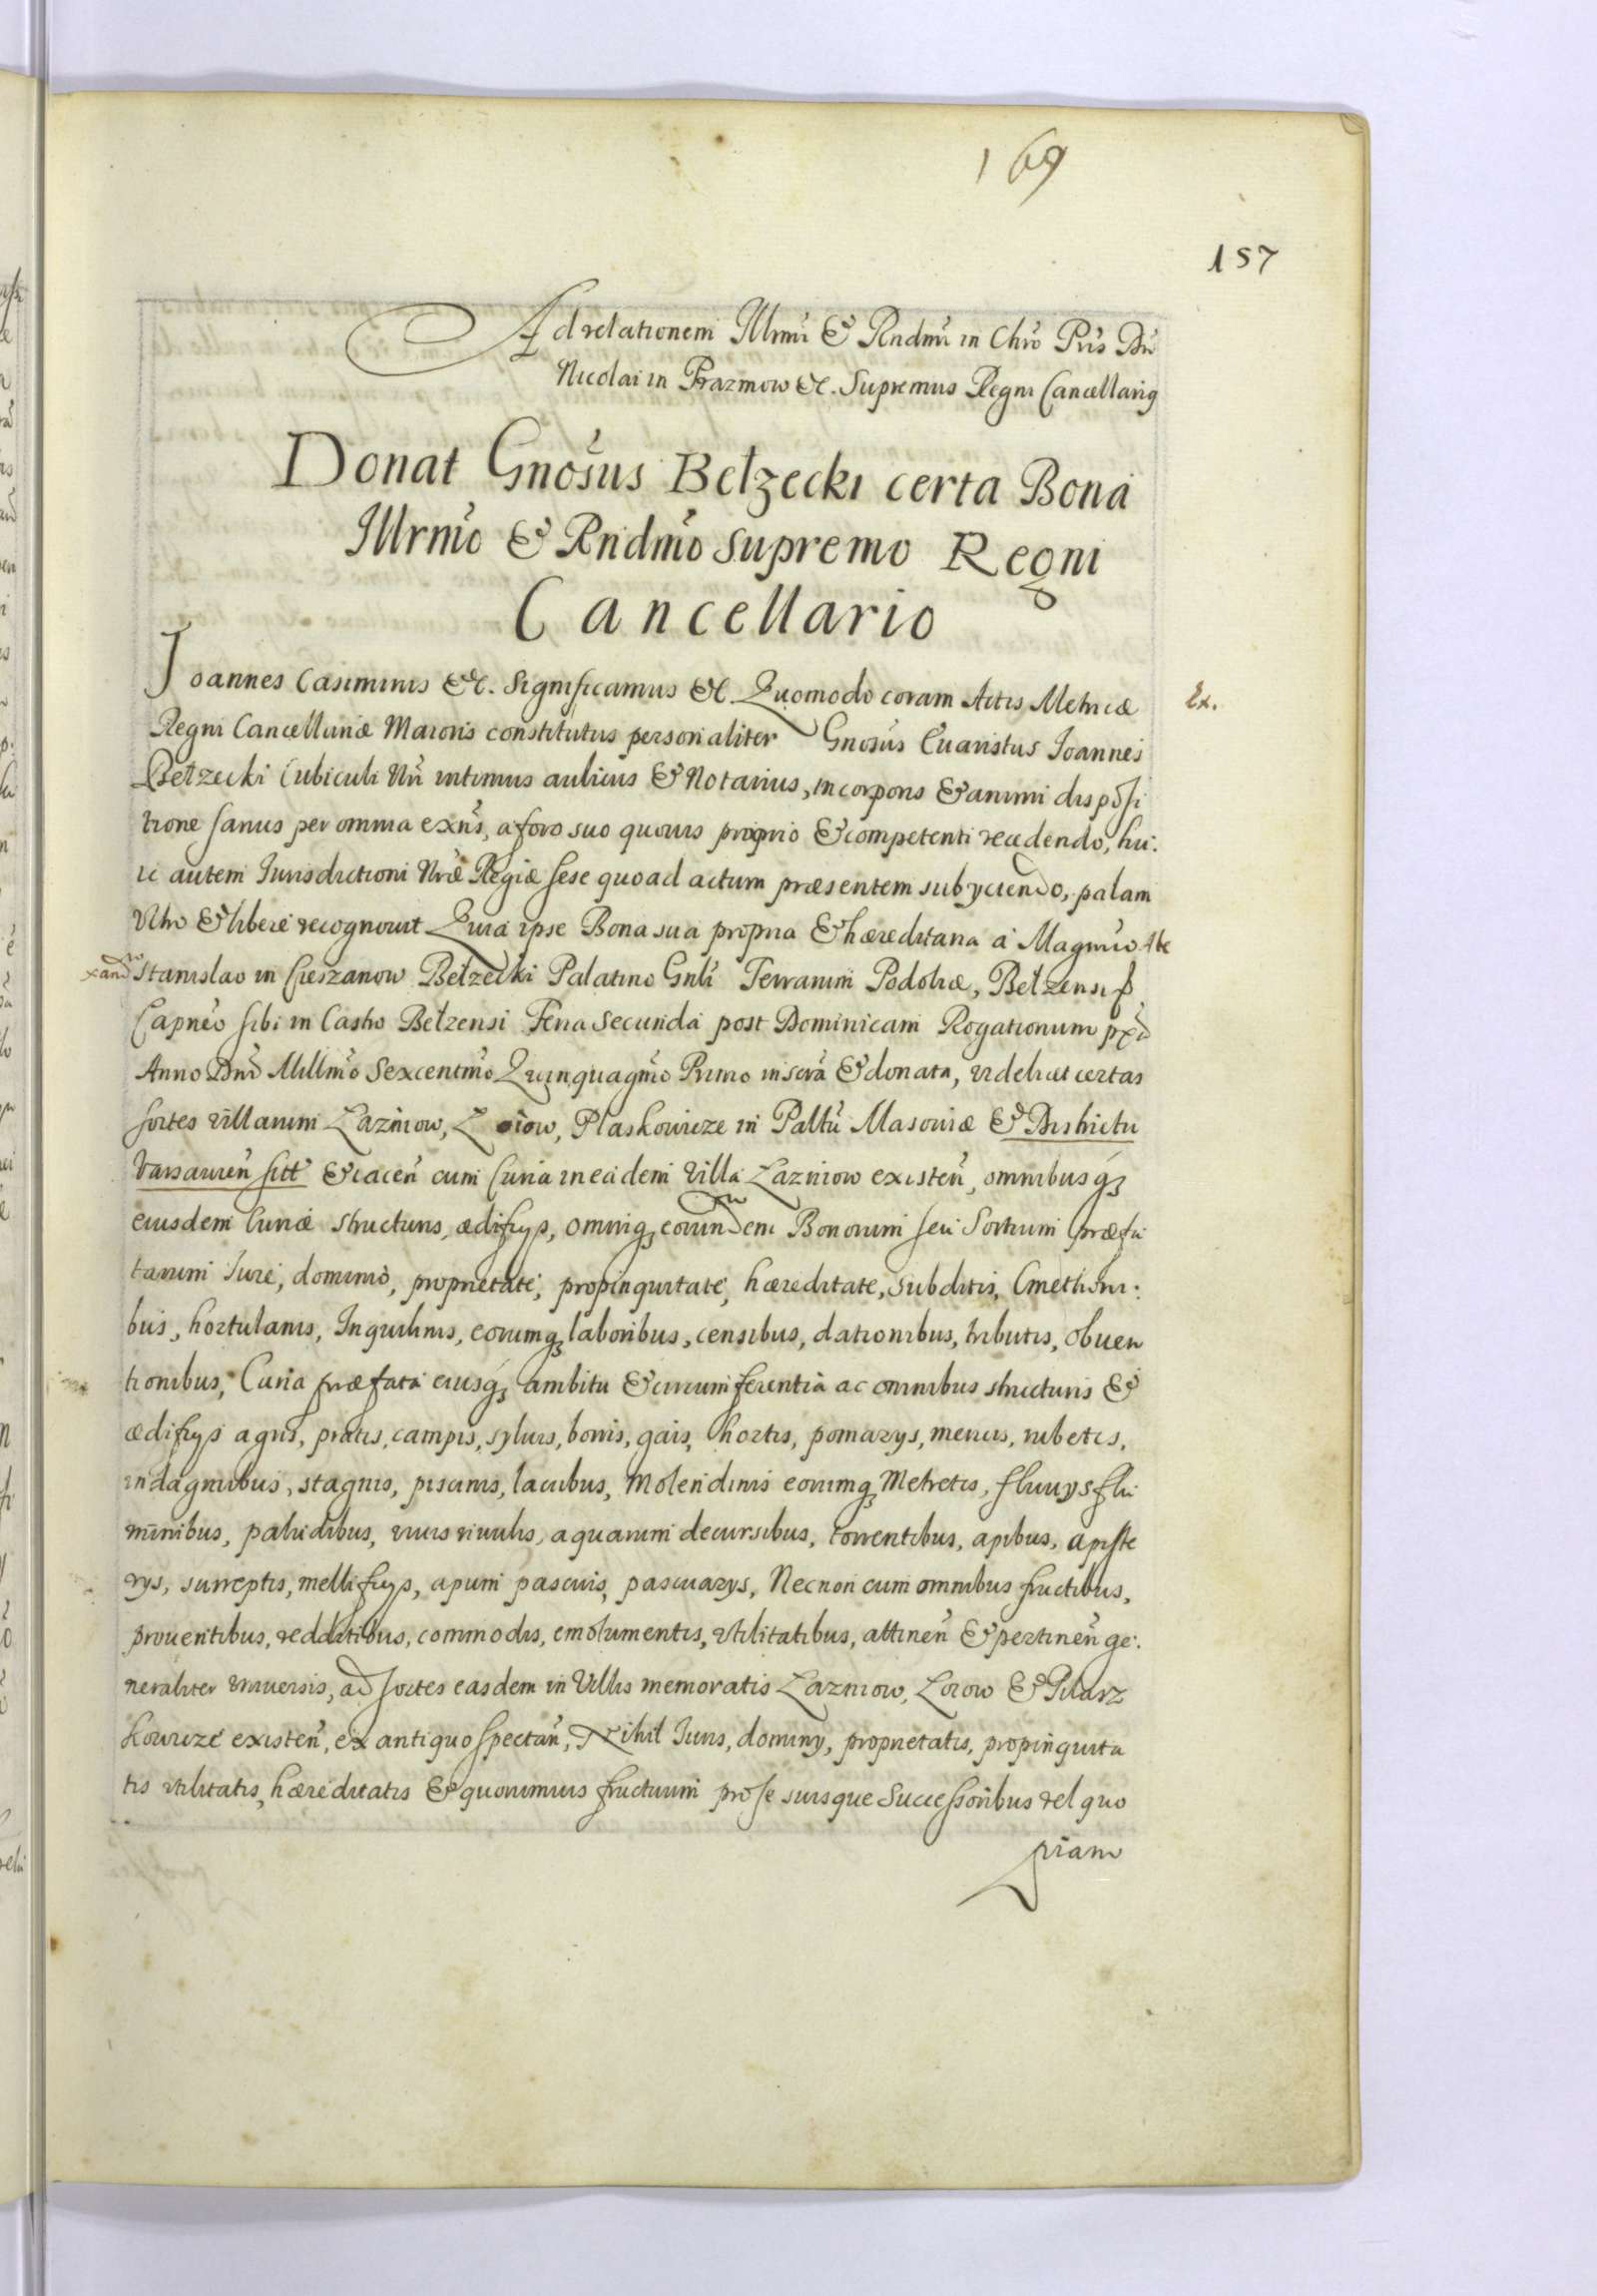 169
157
Ad relationem Illrmi & Rndmi in Chro Pris Dni
Nicolai in Prazmow &c. Supremus Regni Cancellarig
Donat Gnosus Bełzecki certa Bona
Illrmo & Rndmo Supremo Regni
Cancellario
Joannes Casimirus &c. Significamus &c. Quomodo coram Actis Metricæ
Ex.
Regni Cancellariæ Maioris constitutus personaliter Gnosus Euaristus Joannes
Bełzecki Cubiculi Nri intimus aulicus & Notarius, in corporis & animi disposi
tione sanus per omnia exns, a foro suo quouis proprio & competenti recedendo, hui.
ic autem Jurisdictioni Nræ Regiæ sese quoad actum præsentem subyciendo, palam
Vltro & libere recognouit Quia ipse Bona sua propria & hæreditaria a Magnifico Ale
xandro Stanislao in Cieszanow Bełzecki Palatino Gnli Terrarum Podoliæ, Bełzensi
Capneo sibi in Castro Bełzensi Feria Secunda post Dominicam Rogationum pxa
Anno Dni Millmo Sexcentmo Quinquagmo Primo inscra & donata, videlicet certas
sortes villarum Lazniow, Loiow, Plaskowicze in Pallu Masouiæ & Districtu
Varsauien sitt & iacen cum Curia in eadem Villa Lazniow existen, omnibusq3
eiusdem Curiæ structuris, ædificys, omniq3 eorundem Bonorum seu Sortium præfa
tarum Jure, dominio, proprietate, propinquitate, hæreditate, subditis, Cmethoni.
bus, hortulanis, Inquilinis, eorumq3 laboribus, censibus, dationibus, tributis, obuen
tionibus, Curia præfata eiusq3 ambitu & circumferentia ac omnibus structuris &
ædificys agris, pratis, campis, syluis, borris, gais, hortis, pomarys, mericis, rubetis,
indaginibus, stagnis, piscinis, lacubus, Molendinis eorumq3 Metretis, fluuys flu
minibus, paludibus, riuis riuulis, aquarum decursibus, torrentibus, apibus, apiste
rys, surreptis, mellificys, apum pascuis, pascuarys, Necnon cum omnibus fructibus,
prouentibus, redditibus, commodis, emolumentis, vtilitatibus, attinen & pertinen ge.
neraliter vniuersis, ad sortes easdem in Villis memoratis Lazniow, Loiow & Pilarz
kowicze existen, ex antiquo spectan, Nihil Juris, dominy, proprietatis, propinquita
tis vtilitatis, hæreditatis & quorumuis fructuum pro se suisque Successoribus vel quo
piam